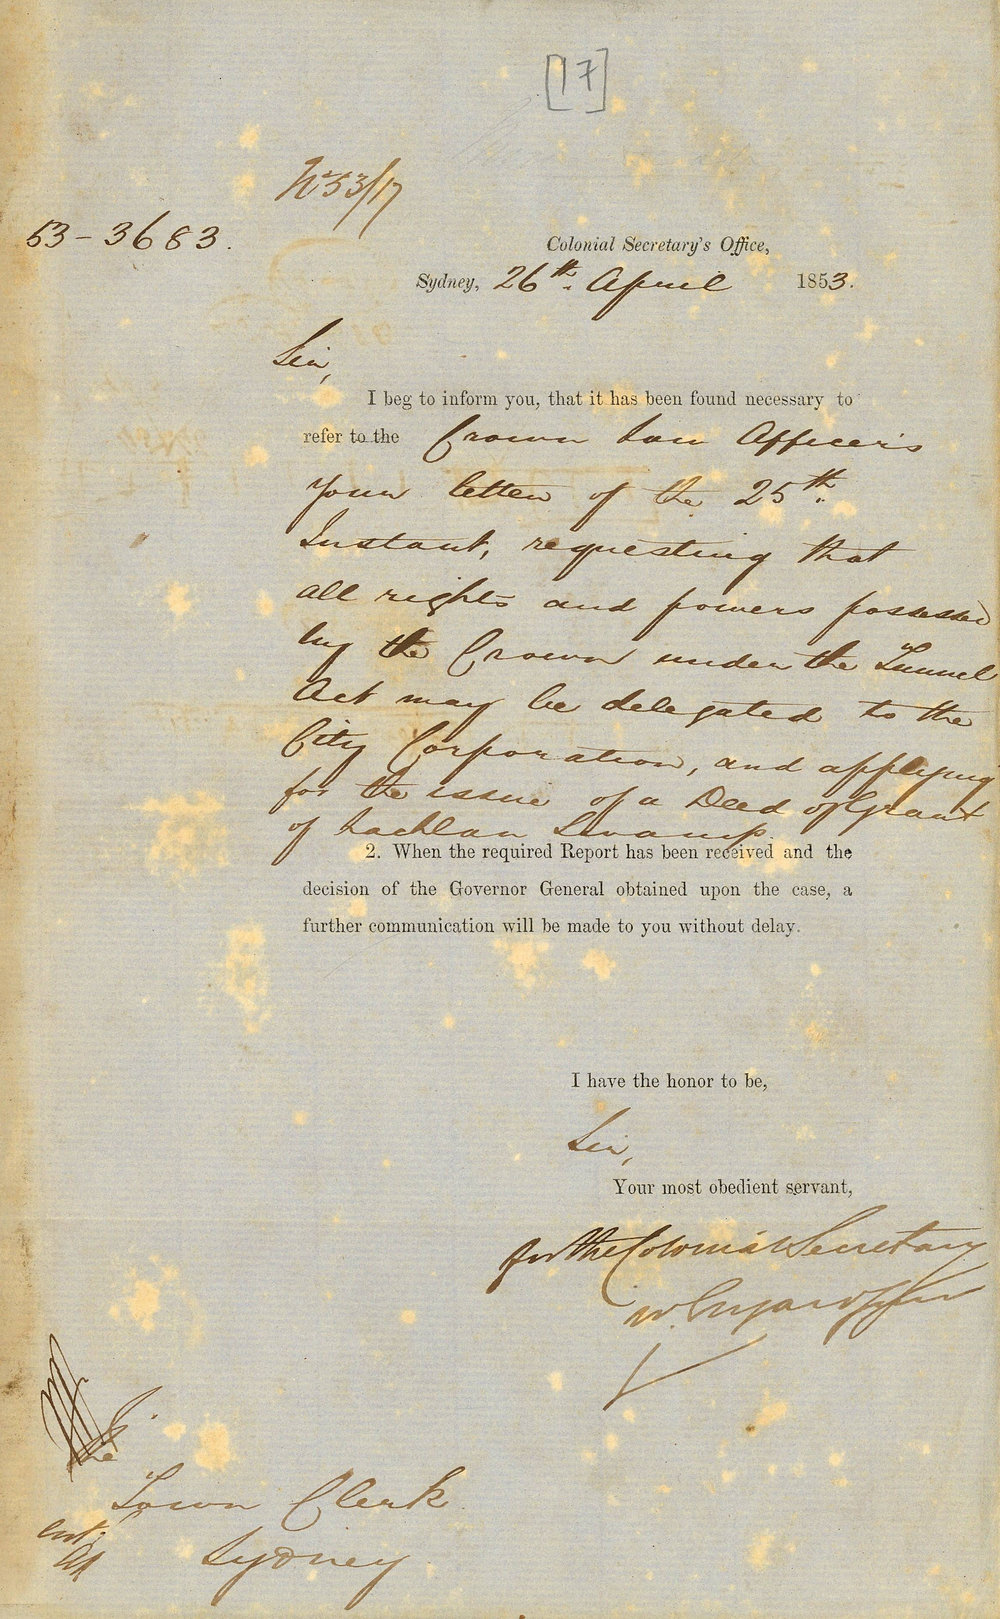 [17]
No 53/17
53-3683.
Colonial Secretary's Office,
Sydney, 26th. April 1853.
Sir,
I beg to inform you, that it has been found necessary to
refer to the Crown Law Officers
your letter of the 25th.
Instant, requesting that
all rights and powers possessed
by the Crown under the Tunnel
Act may be delegated to the
City Corporation, and applying
for the issue of a Deed of Grant
of Lachlan Swamp.
2. When the required Report has been received and the
decision of the Governor General obtained upon the case, a
further communication will be made to you without delay.
I have the honor to be,
Sir,
Your most obedient servant,
for the Colonial Secretary
W.
The
Town Clerk
Sydney